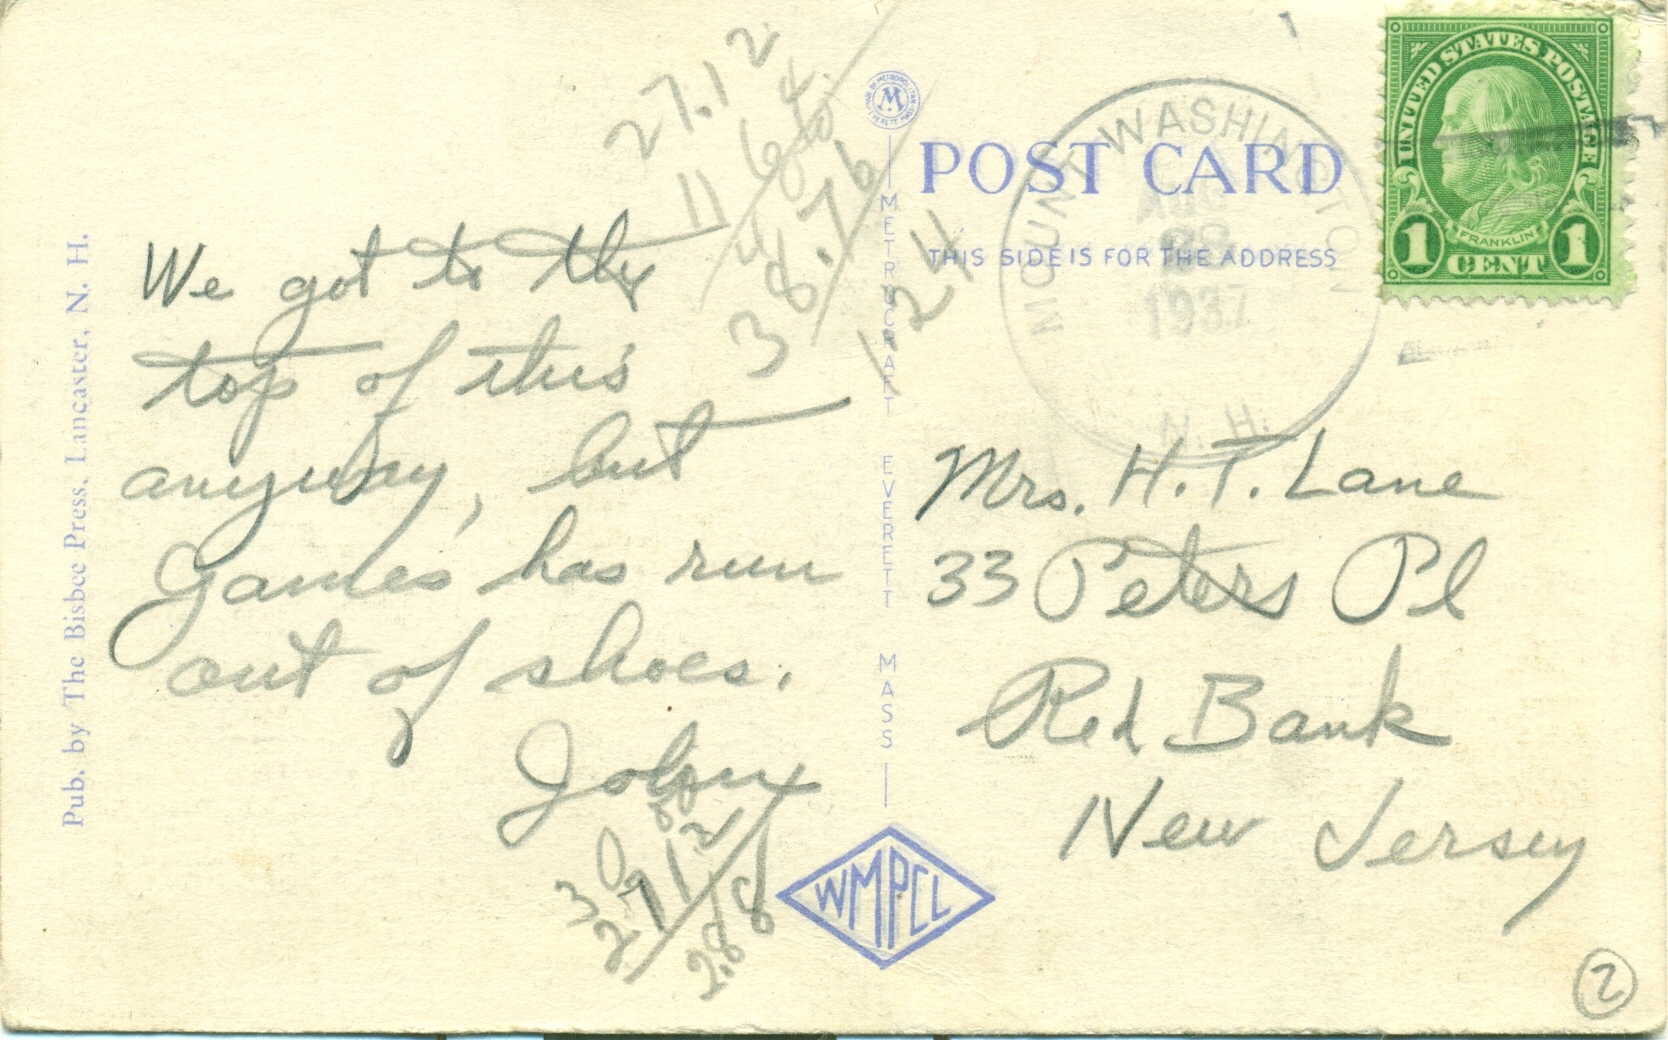 We got to the
top of this
anyway, but
James has run
out of shoes.
John
27.12
11 64
38.76
1 24
30
2712
2.88
Pub. by The Bisbee Press, Lancaster, N. H.
MADE BY METROPOLITAN
M
EVERETT MASS
METROCRAFT EVERETT MASS
WMPCL
POST CARD
THIS SIDE IS FOR THE ADDRESS
MOUNT WASHINGTON
AUG
28
1937
N. H.
UNITED STATES POSTAGE
FRANKLIN
1 CENT 1
Mrs. H. T. Lane
33 Peters Pl
Red Bank
New Jersey
2